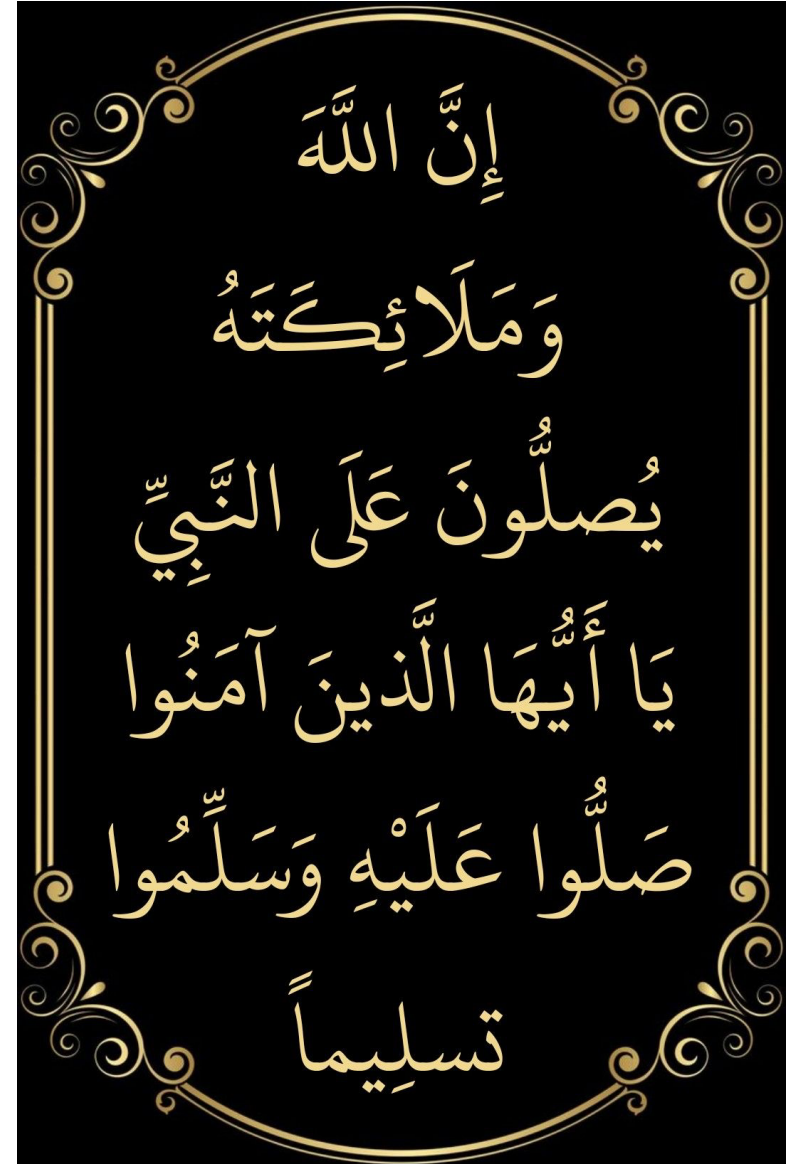 إِنَّ اللَّهَ
وَمَلَائِكَتَهُ
يُصلُّونَ عَلَى النَّبِيِّ
يَا أَيُّهَا الَّذينَ آمَنُوا
صَلُّوا عَلَيْهِ وَسَلِّمُوا
تسلِيماً